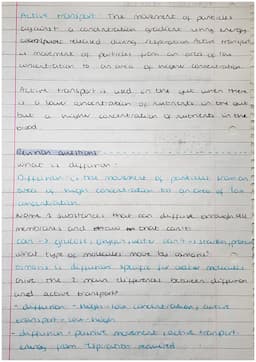 Active transport: The movement of particles
against a concentration gradient using energy
released during respiration. Active transport
is movement of particles from an area of low
concentration to an area of higher concentration.
Active transport is used in the gut when there
is a lower concentration of nutrients in the gut
but a higher concentration of nutrients in the
blood.
Revision questions
what is diffusion?
Diffusion is the movement of particles from an
area of high concentration to an area of low
concentration
Name 2 substances that can diffuse through cell
membranes and that can't:
can -> glucose, oxygen, water can't -> starch, protein
what type of molecules move by osmosis?
osmosis is diffusion specific for water molecules
Give the 2 main differences between diffusion
and active transport
- diffusion - high - low concentration, active
transport - low - high
- diffusion - passive movement, active transport -
energy from respiration required